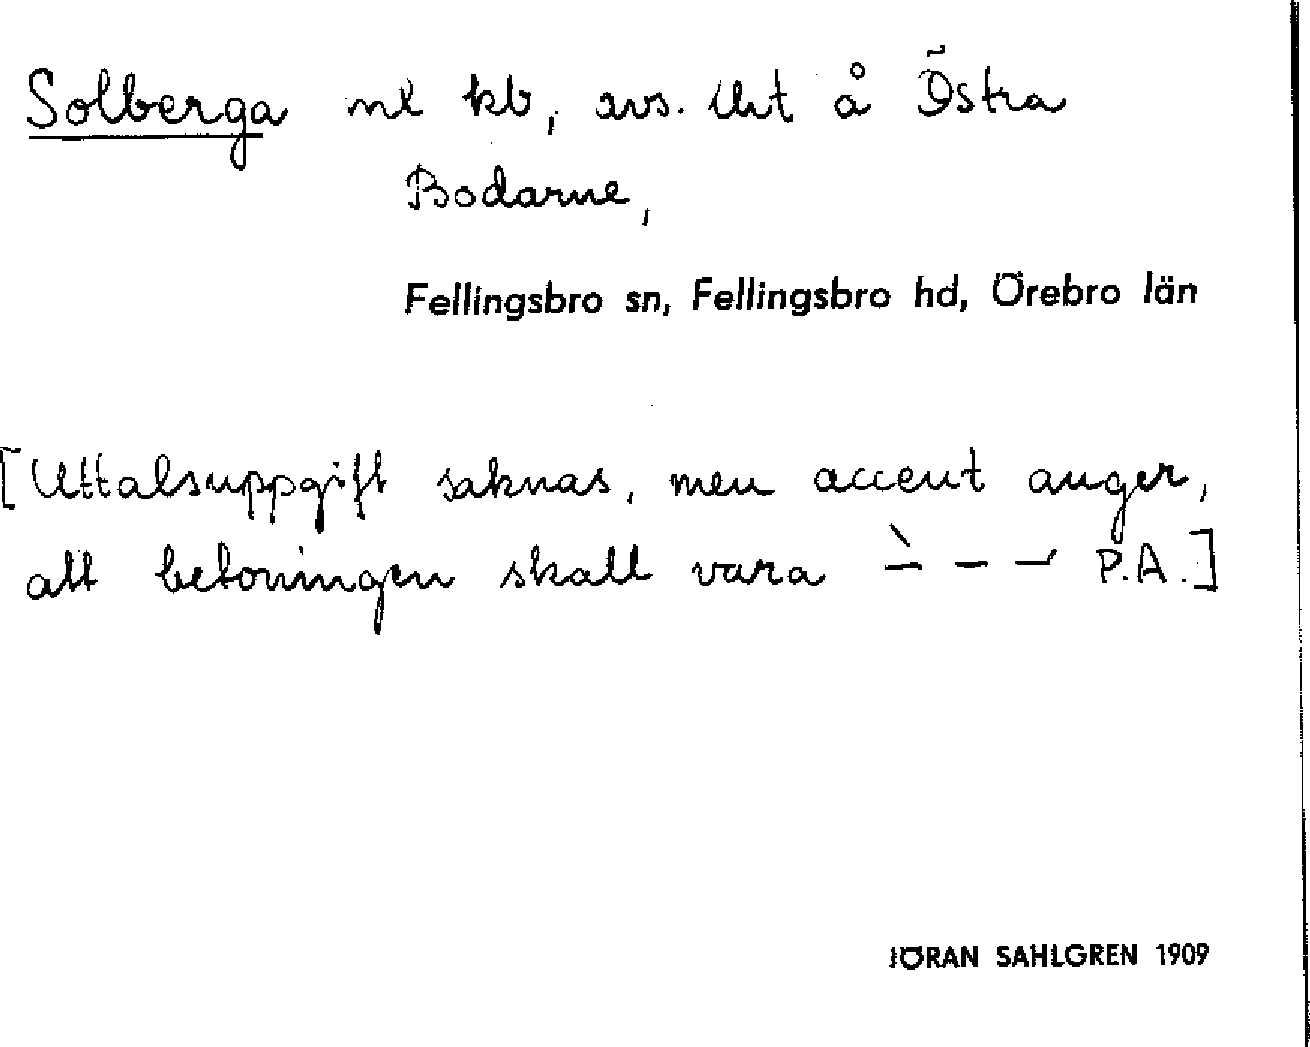 Solberga nl kb, avs. lht å Östra
Bodarne,
Fellingsbro sn, Fellingsbro hd, Örebro län
[Uttalsuppgift saknas, men accent anger,
att betoningen skall vara ̀– – – P.A.]
JÖRAN SAHLGREN 1909